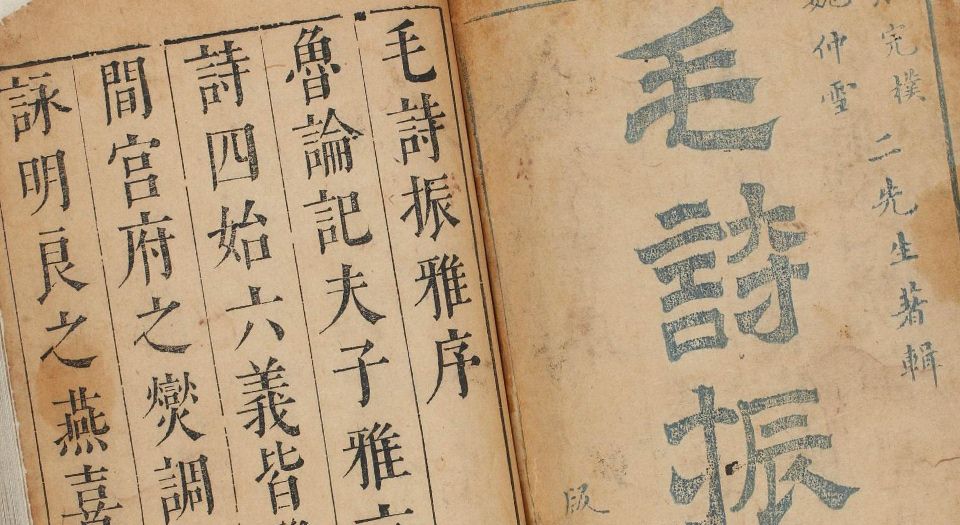 完樸
仲雪
二先生著輯
毛詩振
毛詩振雅序
魯論記夫子雅
詩四始六義皆
間宮府之燮調
詠明良之燕喜